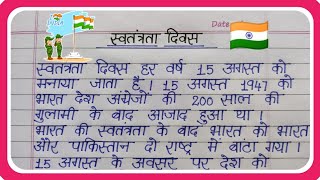 Date
स्वतंत्रता दिवस
स्वतंत्रता दिवस हर वर्ष 15 अगस्त को
मनाया जाता है । 15 अगस्त 1947 को
भारत देश अंग्रेजो की 200 साल की
गुलामी के बाद आजाद हुआ था ।
भारत की स्वतंत्रता के बाद भारत को भारत
और पाकिस्तान दो राष्ट्र में बांटा गया ।
15 अगस्त के अवसर पर देश को